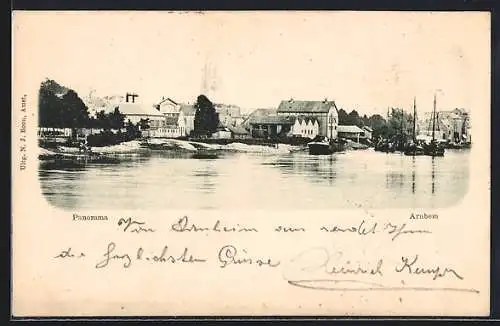 Uitg. N. J. Boon, Amst.
Panorama
Arnhem
Von Arnheim aus sendet Ihnen
die herzlichsten Grüsse
Heinrich Kemper